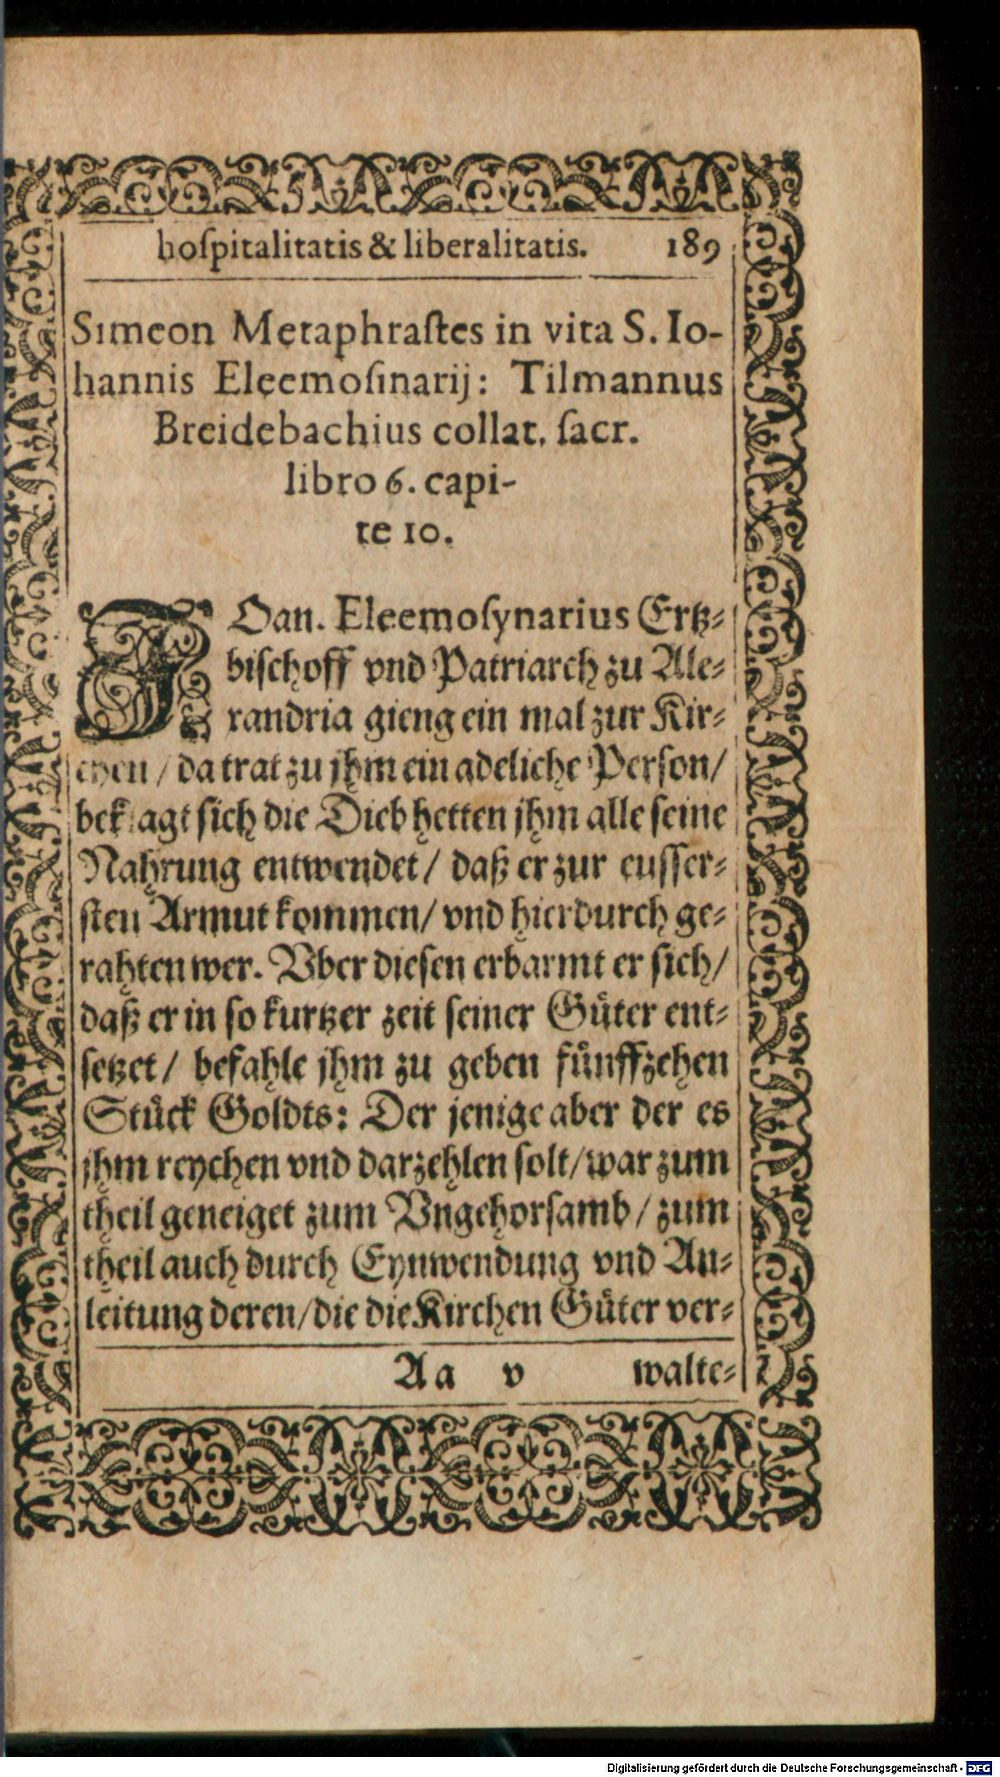 hoſpitalitatis & liberalitatis. 189
Simeon Metaphraſtes in vita S. Io-
hannis Eleemoſinarij: Tilmannus
Breidebachius collat. ſacr.
libro 6. capi-
te 10.
JOan. Eleemoſynarius Ertz-
biſchoff vnd Patriarch zu Ale-
xandria gieng ein mal zur Kir-
chen / da trat zu jhm ein adeliche Perſon /
beklagt ſich die Dieb hetten jhm alle ſeine
Nahrung entwendet / daß er zur euſſer-
ſten Armut kommen / vnd hierdurch ge-
rahten wer. Vber dieſen erbarmt er ſich /
daß er in ſo kurtzer zeit ſeiner Guͤter ent-
ſetzet / befahle jhm zu geben fuͤnffzehen
Stuͤck Goldts: Der jenige aber der es
jhm reychen vnd darzehlen ſolt / war zum
theil geneiget zum Vngehorſamb / zum
theil auch durch Eynwendung vnd An-
leitung deren / die die Kirchen Guͤter ver-
Aa v walte-
Digitalisierung gefördert durch die Deutsche Forschungsgemeinschaft - DFG